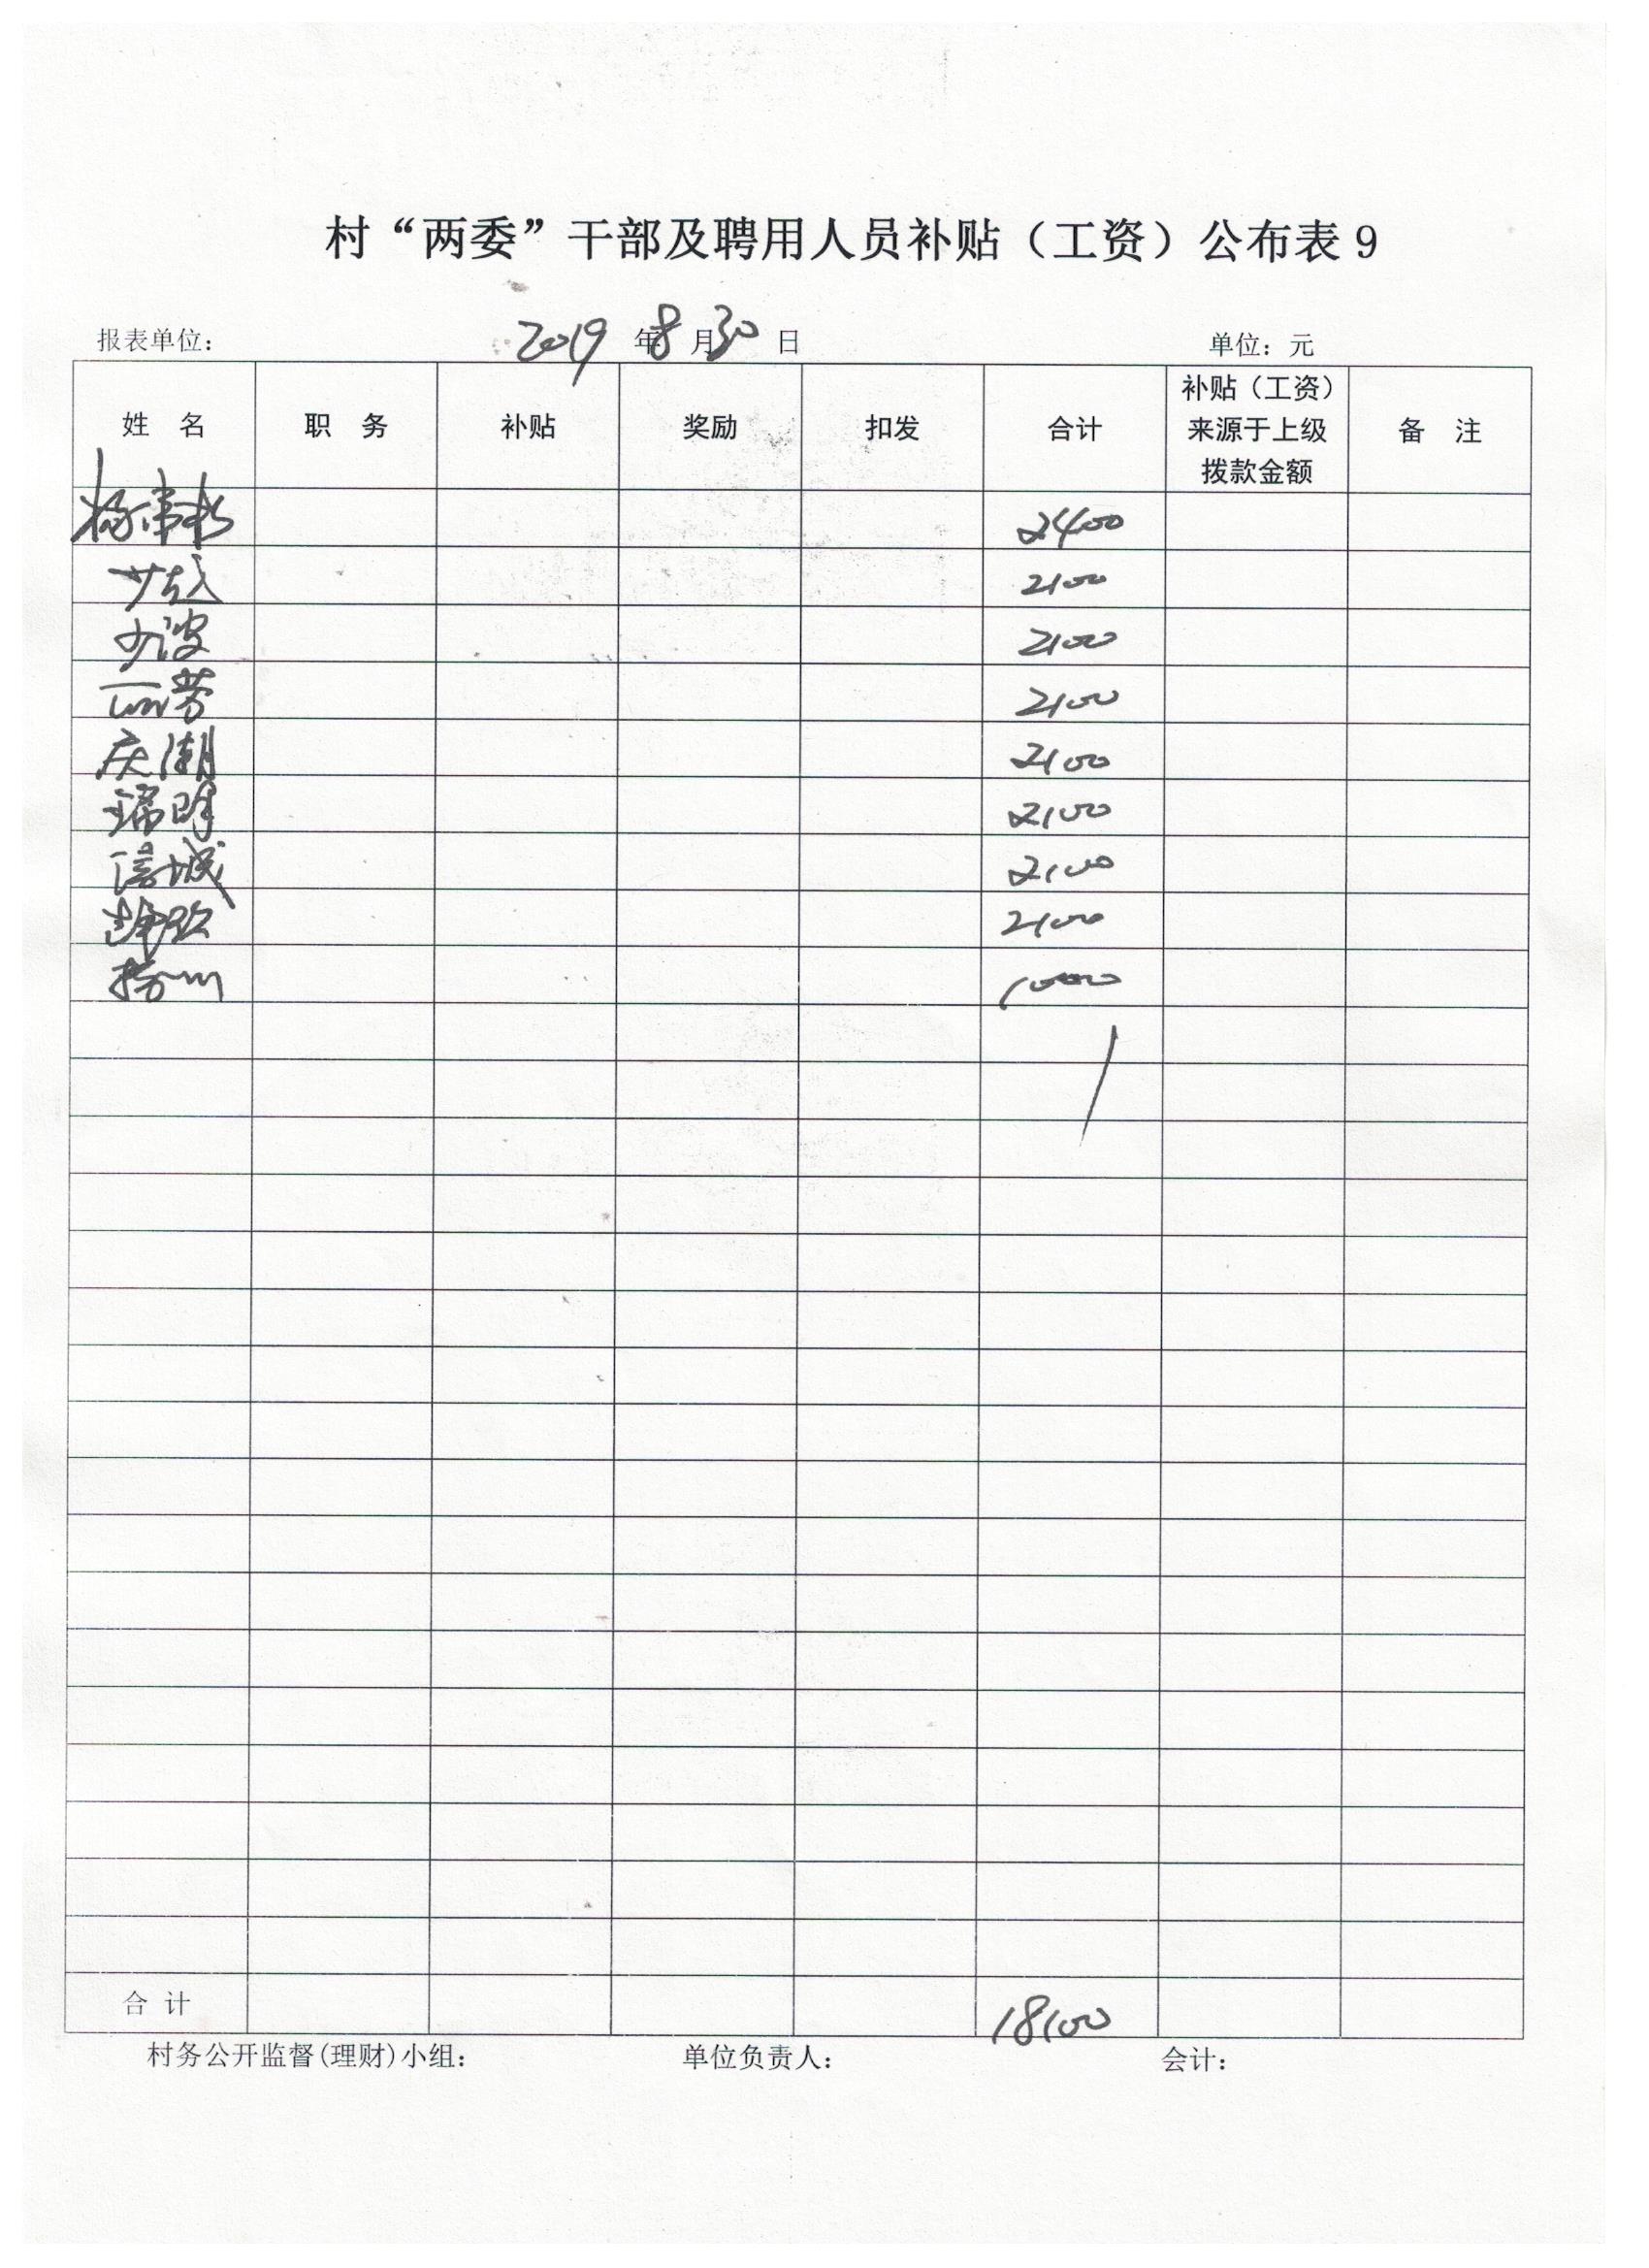 村“两委”干部及聘用人员补贴（工资）公布表9
报表单位： 2019年8月30日 单位：元
姓 名 职 务 补贴 奖励 扣发 合计 补贴（工资）来源于上级拨款金额 备 注
杨伟 2400
少 2100
少波 2100
丽芳 2100
庆潮 2100
瑞明 2100
信城 2100
2100
合 计 18100
村务公开监督(理财)小组： 单位负责人： 会计：